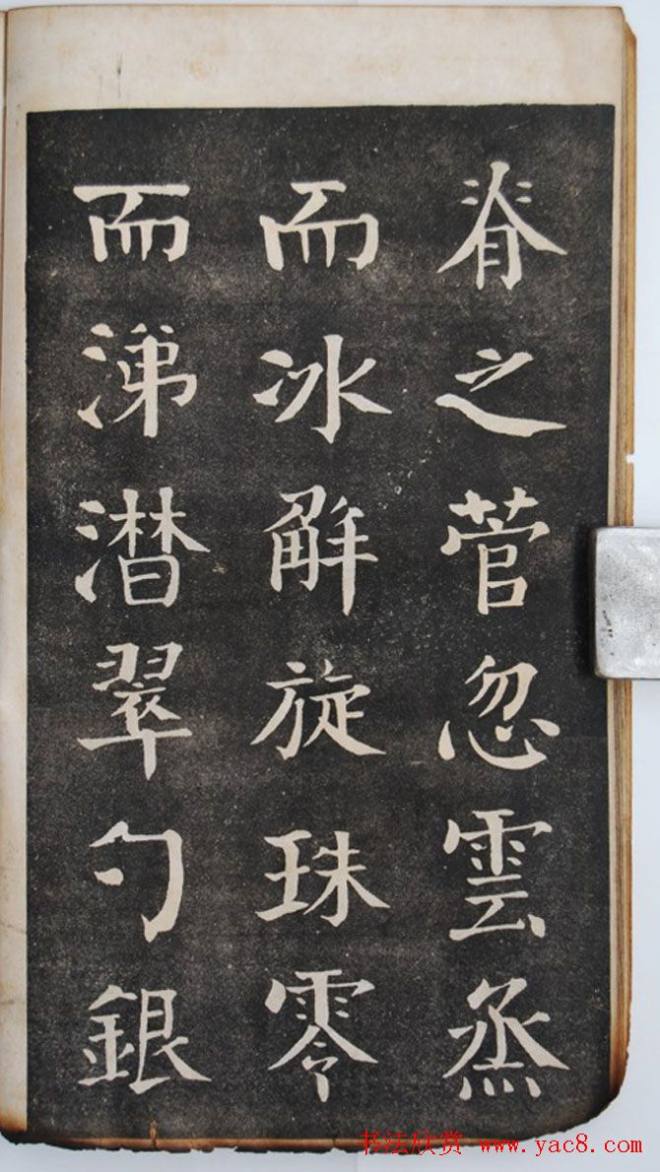 脊之菅忽雲烝
而冰解旋珠零
而涕潸翠勺銀
书法欣赏 www.yac8.com